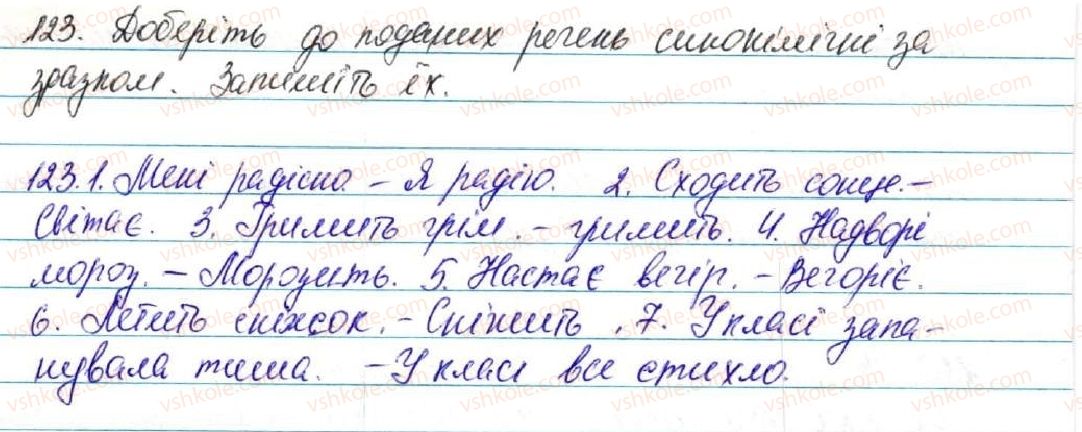 123. Доберіть до поданих речень синонімічні за
зразком. Запишіть їх.
123.1. Мені радісно – Я радію. 2. Сходить сонце. –
Світає. 3. Гримить грім. – гримить. 4. Надворі
мороз. – Морозить. 5. Настає вечір. – Вечоріє.
6. Летить сніжок. – Сніжить. 7. У класі запа-
нувала тиша. – У класі все стихло.